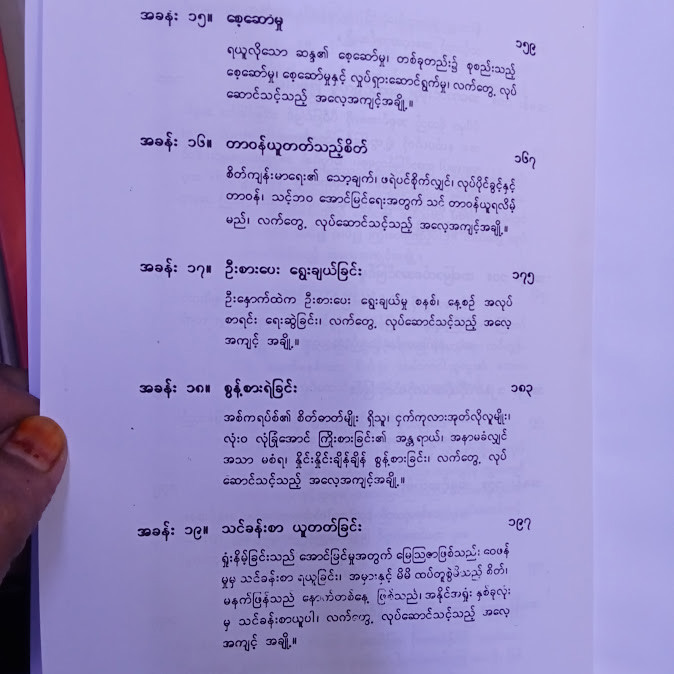 အခန်း ၁၅။ စေ့ဆော်မှု ၁၅၉
ရယူလိုသော ဆန္ဒ၏ စေ့ဆော်မှု၊ တစ်ခုတည်း၌ စုစည်းသည့်
စေ့ဆော်မှု၊ စေ့ဆော်မှုနှင့် လှုပ်ရှားဆောင်ရွက်မှု၊ လက်တွေ့ လုပ်
ဆောင်သင့်သည့် အလေ့အကျင့်အချို့။
အခန်း ၁၆။ တာဝန်ယူတတ်သည့်စိတ် ၁၆၇
စိတ်ကျန်းမာရေး၏ သော့ချက်၊ ဖရဲပင်စိုက်လျှင်၊ လုပ်ပိုင်ခွင့်နှင့်
တာဝန်၊ သင့်ဘဝ အောင်မြင်ရေးအတွက် သင် တာဝန်ယူရလိမ့်
မည်၊ လက်တွေ့ လုပ်ဆောင်သင့်သည့် အလေ့အကျင့်အချို့။
အခန်း ၁၇။ ဦးစားပေး ရွေးချယ်ခြင်း ၁၇၅
ဦးနှောက်ထဲက ဦးစားပေး ရွေးချယ်မှု စနစ်၊ နေ့စဉ် အလုပ်
စာရင်း ရေးဆွဲခြင်း၊ လက်တွေ့ လုပ်ဆောင်သင့်သည့် အလေ့
အကျင့် အချို့။
အခန်း ၁၈။ စွန့်စားရဲခြင်း ၁၈၃
အစ်ကရပ်စ်၏ စိတ်ဓာတ်မျိုး ရှိသူ၊ ငှက်ကုလားအုတ်လိုလူမျိုး၊
လုံးဝ လုံခြုံအောင် ကြိုးစားခြင်း၏ အန္တရာယ်၊ အနာမခံလျှင်
အသာ မစံရ၊ နှိုင်းနှိုင်းချိန်ချိန် စွန့်စားခြင်း၊ လက်တွေ့ လုပ်
ဆောင်သင့်သည့် အလေ့အကျင့်အချို့။
အခန်း ၁၉။ သင်ခန်းစာ ယူတတ်ခြင်း ၁၉၇
ရှုံးနိမ့်ခြင်းသည် အောင်မြင်မှုအတွက် မြေဩဇာဖြစ်သည်၊ ဝေဖန်
မှုမှ သင်ခန်းစာ ရယူခြင်း၊ အမှားနှင့် မိမိ ထပ်တူစွဲမိသည့် စိတ်၊
မနက်ဖြန်သည် နောက်တစ်နေ့ ဖြစ်သည်၊ အနိုင်အရှုံး နှစ်ခုလုံး
မှ သင်ခန်းစာယူပါ၊ လက်တွေ့ လုပ်ဆောင်သင့်သည့် အလေ့
အကျင့် အချို့။